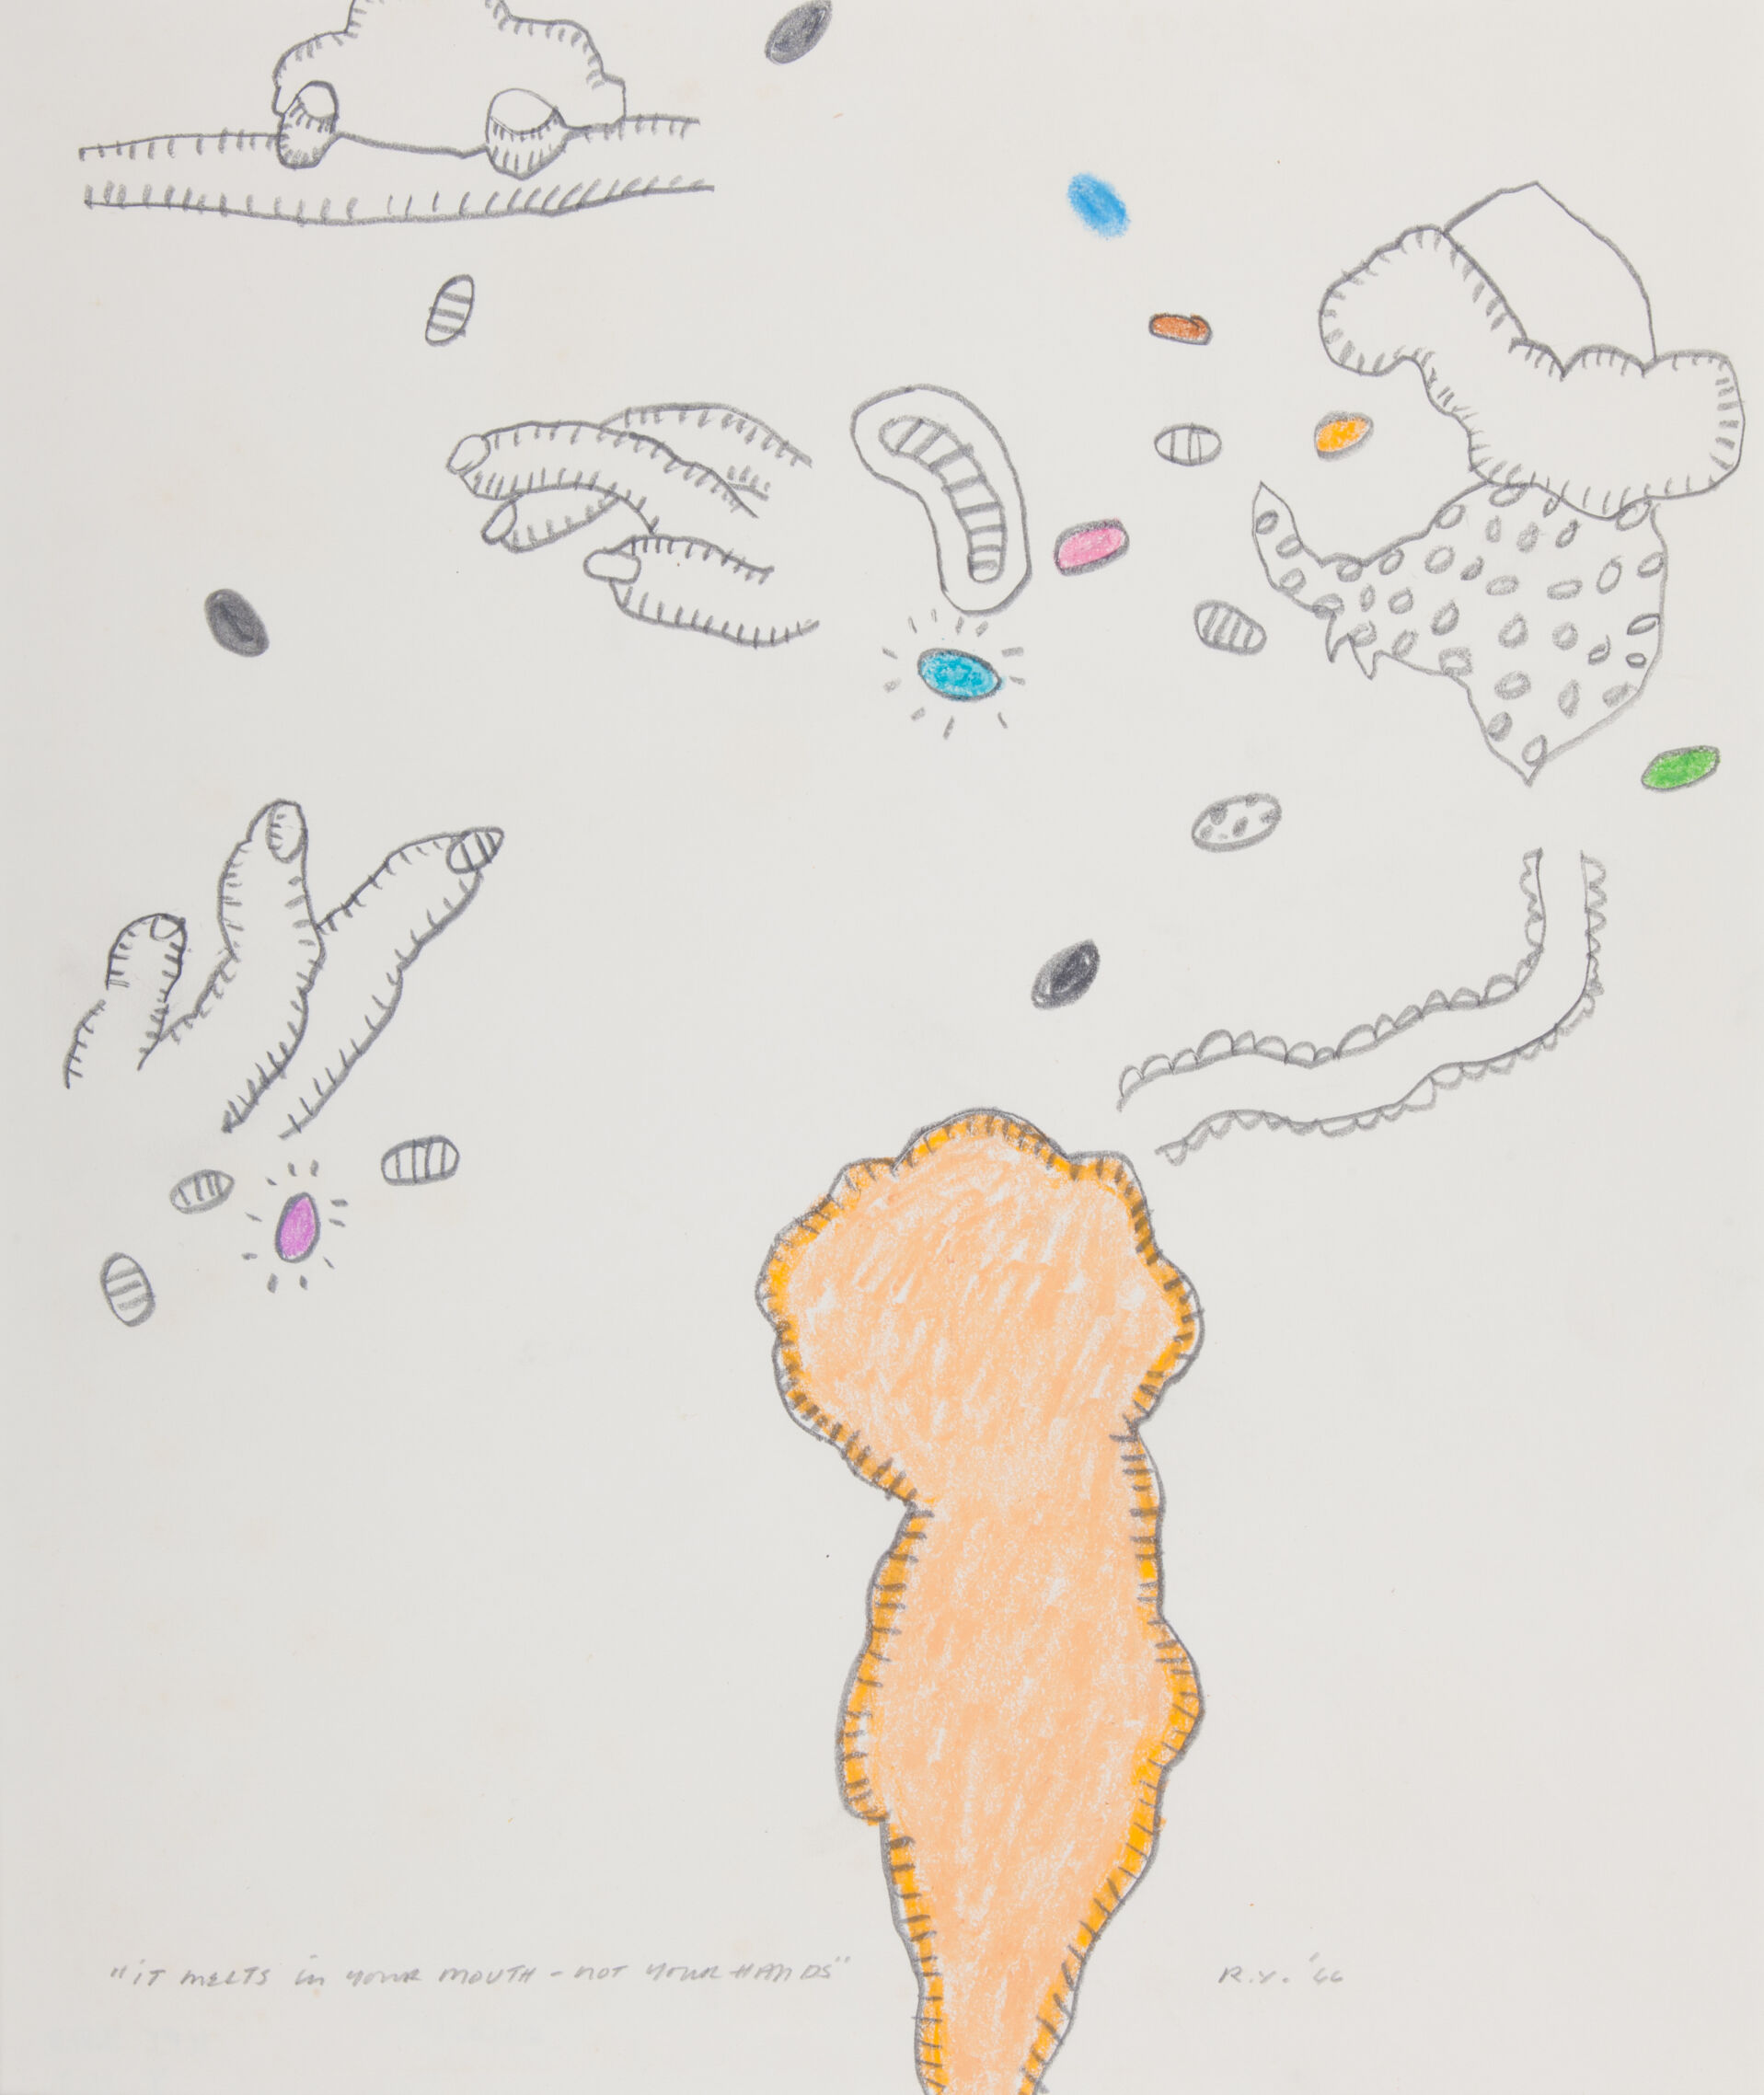 "iT MELTS in YOUR MOUTH - NOT YOUR HANDS"
R.Y. '66